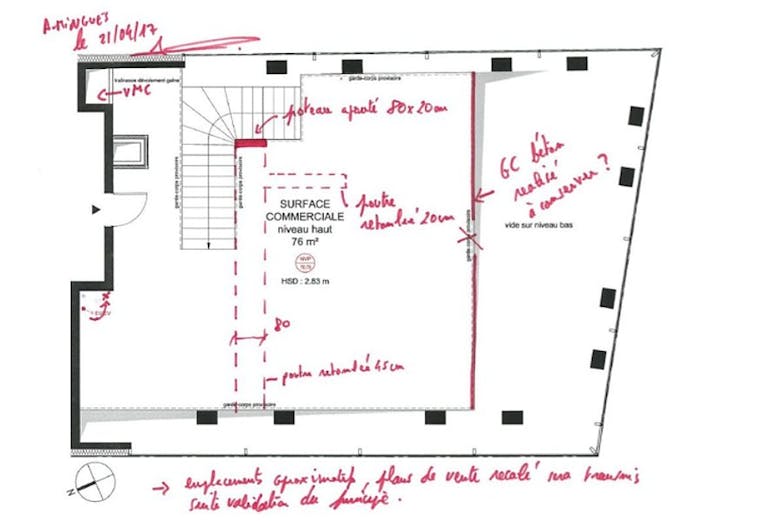 A. MINGUES
le 21/04/17
trainasse dévoiement gaine
garde-corps provisoire
garde-corps provisoire
VMC
poteau ajouté 80x20cm
GC béton
realisé
à conserver ?
garde-corps provisoire
garde-corps provisoire
SURFACE
COMMERCIALE
niveau haut
76 m²
HSD : 2.83 m
poutre
retombée 20cm
garde-corps provisoire
vide sur niveau bas
80
poutre retombée 45cm
garde-corps provisoire
N
→ emplacements aproximatif, plans de vente recalé sera transmis
suite validation du principe.